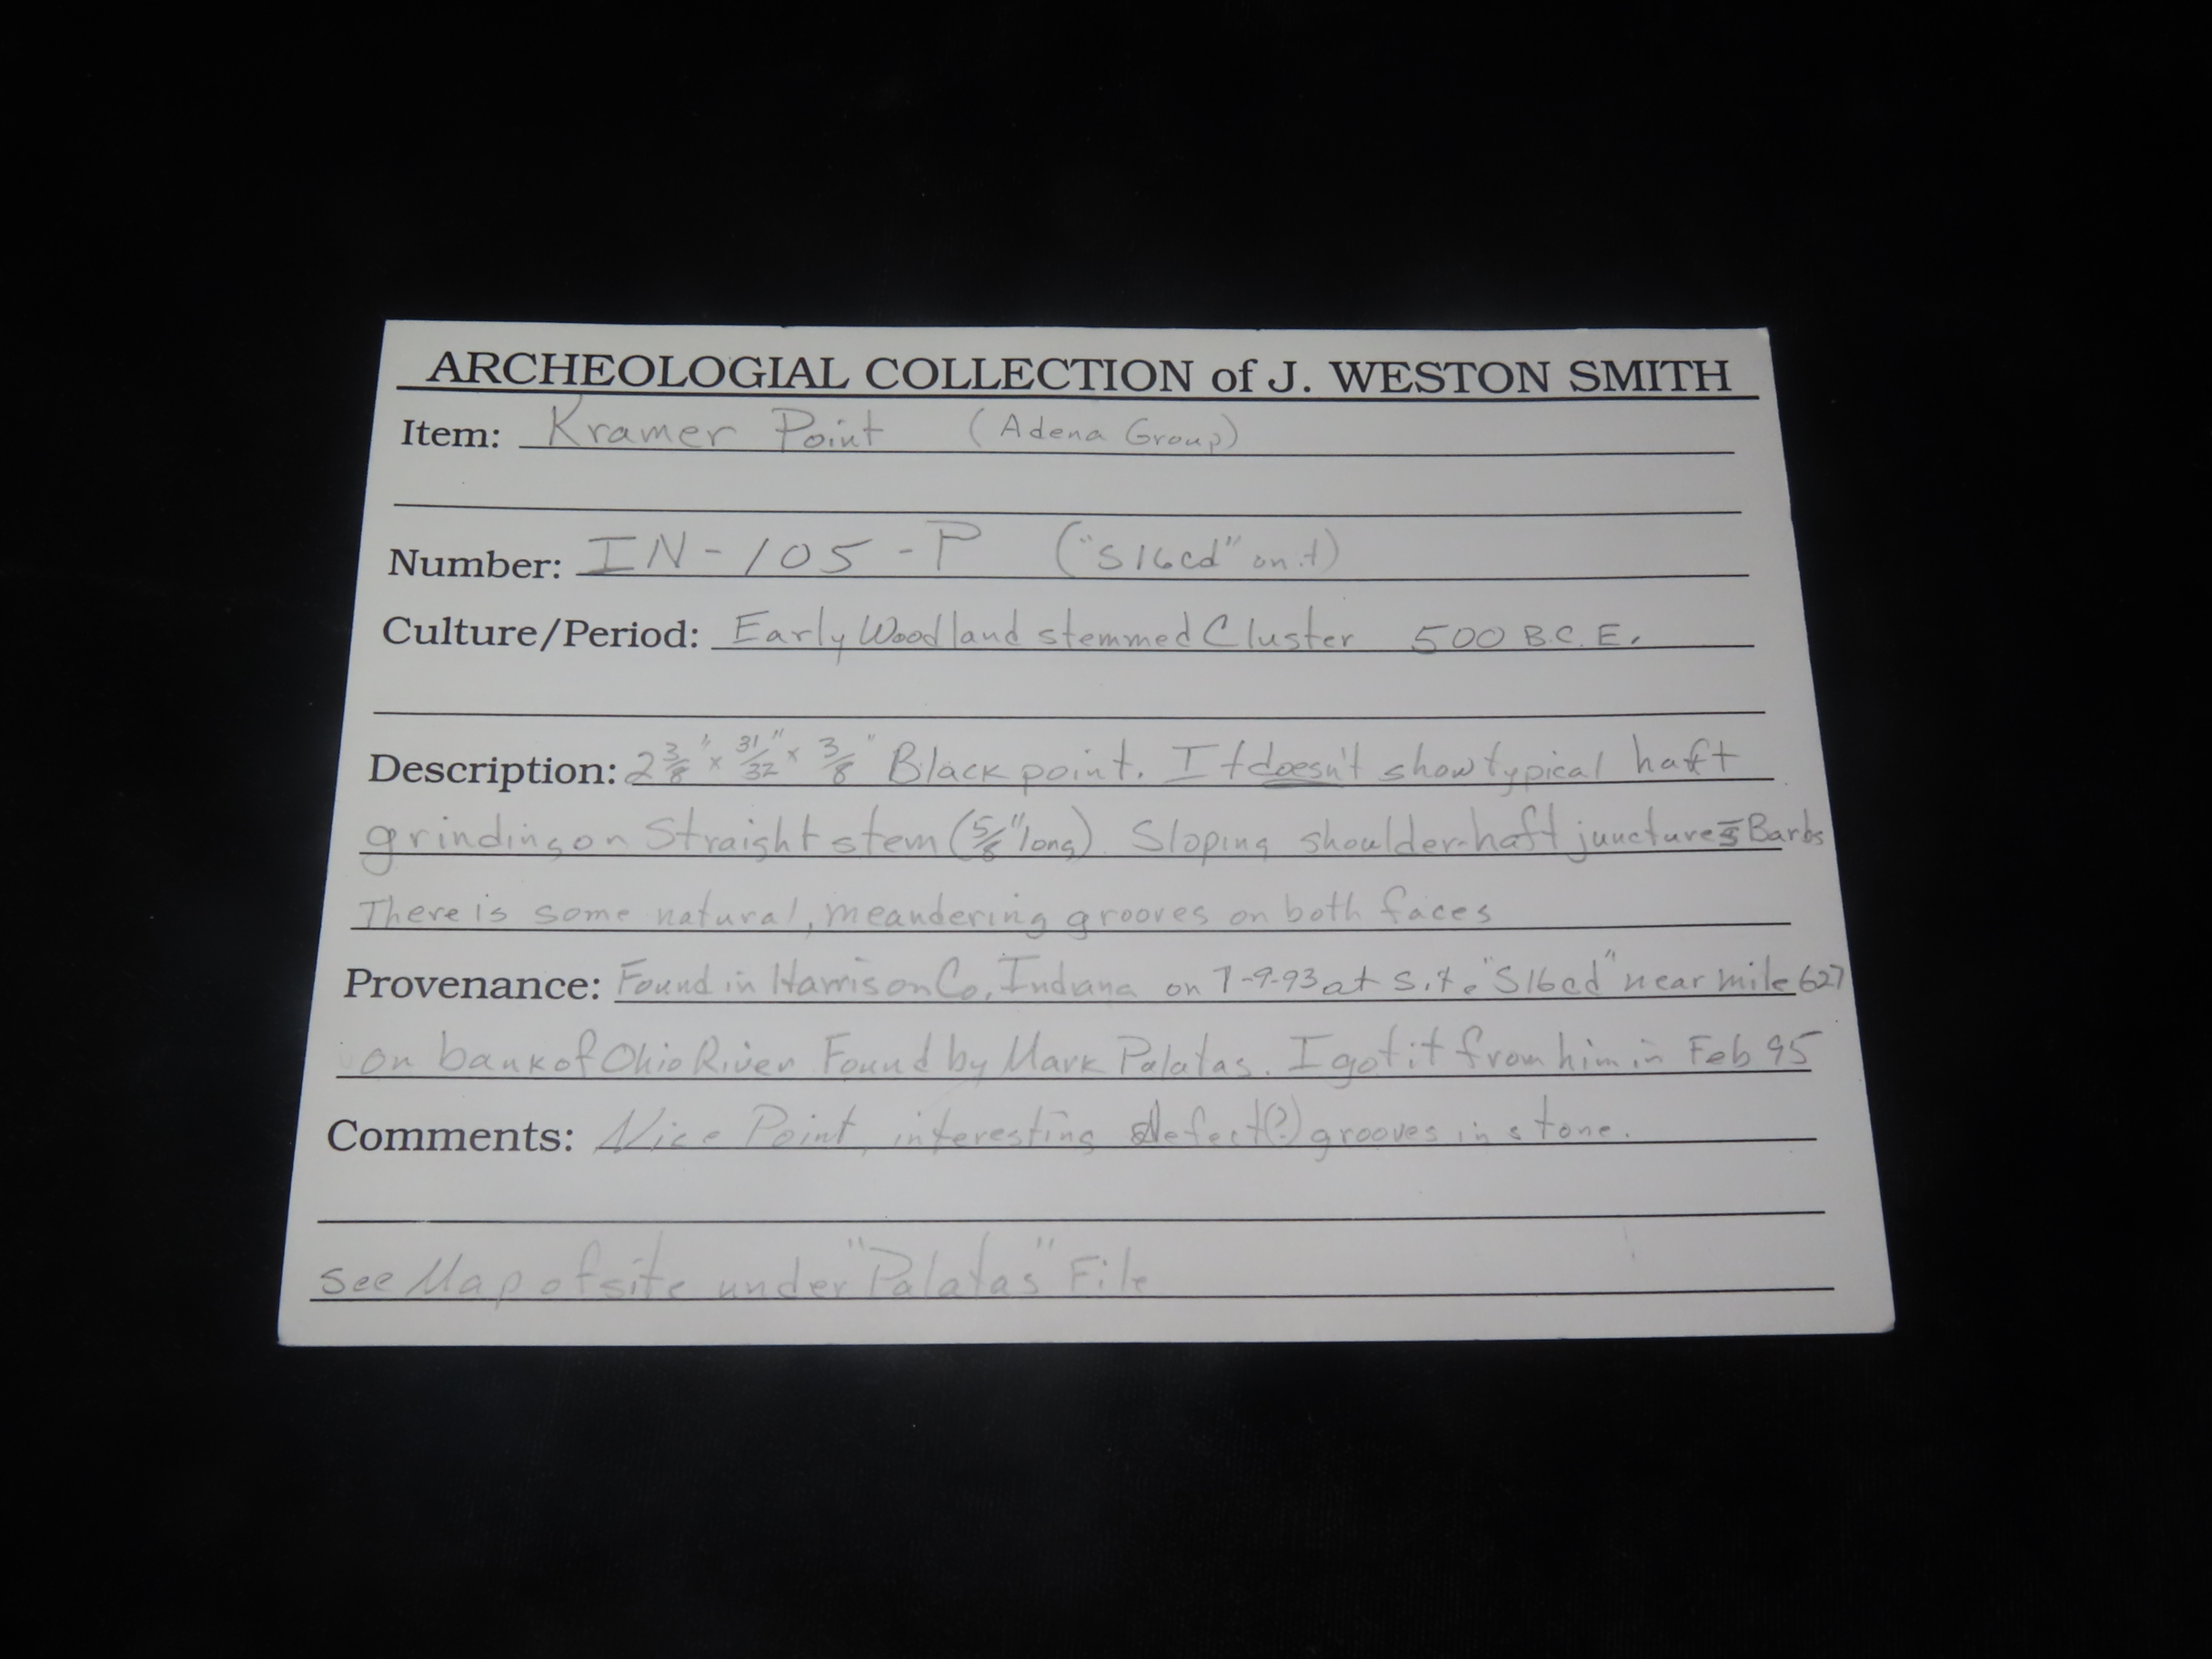 ARCHEOLOGIAL COLLECTION of J. WESTON SMITH
Item: Kramer Point (Adena Group)
Number: IN-105-P ("S16cd" on it)
Culture/Period: Early Woodland stemmed Cluster 500 B.C.E.
Description: 2 3/8" x 31/32" x 3/8" Black point. It doesn't show typical haft
grinding on Straight stem (5/8" long). Sloping shoulder-haft juncture s̅ Barbs
There is some natural, meandering grooves on both faces
Provenance: Found in Harrison Co, Indiana on 7-9-93 at site "S16cd" near mile 627
on bank of Ohio River Found by Mark Palatas. I got it from him in Feb 95
Comments: Nice Point, interesting defect(?) grooves in stone.
see Map of site under "Palatas" File